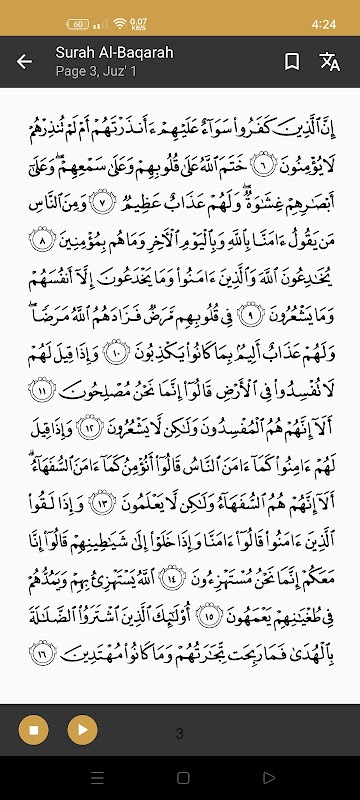 60 0.07 KB/S 4:24
Surah Al-Baqarah
Page 3, Juz' 1
إِنَّ ٱلَّذِينَ كَفَرُوا۟ سَوَآءٌ عَلَيْهِمْ ءَأَنذَرْتَهُمْ أَمْ لَمْ تُنذِرْهُمْ
لَا يُؤْمِنُونَ ٦ خَتَمَ ٱللَّهُ عَلَىٰ قُلُوبِهِمْ وَعَلَىٰ سَمْعِهِمْ ۖ وَعَلَىٰٓ
أَبْصَٰرِهِمْ غِشَٰوَةٌ ۖ وَلَهُمْ عَذَابٌ عَظِيمٌ ٧ وَمِنَ ٱلنَّاسِ
مَن يَقُولُ ءَامَنَّا بِٱللَّهِ وَبِٱلْيَوْمِ ٱلْـَٔاخِرِ وَمَا هُم بِمُؤْمِنِينَ ٨
يُخَٰدِعُونَ ٱللَّهَ وَٱلَّذِينَ ءَامَنُوا۟ وَمَا يَخْدَعُونَ إِلَّآ أَنفُسَهُمْ
وَمَا يَشْعُرُونَ ٩ فِى قُلُوبِهِم مَّرَضٌ فَزَادَهُمُ ٱللَّهُ مَرَضًا ۖ
وَلَهُمْ عَذَابٌ أَلِيمٌۢ بِمَا كَانُوا۟ يَكْذِبُونَ ١٠ وَإِذَا قِيلَ لَهُمْ
لَا تُفْسِدُوا۟ فِى ٱلْأَرْضِ قَالُوٓا۟ إِنَّمَا نَحْنُ مُصْلِحُونَ ١١
أَلَآ إِنَّهُمْ هُمُ ٱلْمُفْسِدُونَ وَلَٰكِن لَّا يَشْعُرُونَ ١٢ وَإِذَا قِيلَ
لَهُمْ ءَامِنُوا۟ كَمَآ ءَامَنَ ٱلنَّاسُ قَالُوٓا۟ أَنُؤْمِنُ كَمَآ ءَامَنَ ٱلسُّفَهَآءُ ۗ
أَلَآ إِنَّهُمْ هُمُ ٱلسُّفَهَآءُ وَلَٰكِن لَّا يَعْلَمُونَ ١٣ وَإِذَا لَقُوا۟
ٱلَّذِينَ ءَامَنُوا۟ قَالُوٓا۟ ءَامَنَّا وَإِذَا خَلَوْا۟ إِلَىٰ شَيَٰطِينِهِمْ قَالُوٓا۟ إِنَّا
مَعَكُمْ إِنَّمَا نَحْنُ مُسْتَهْزِءُونَ ١٤ ٱللَّهُ يَسْتَهْزِئُ بِهِمْ وَيَمُدُّهُمْ
فِى طُغْيَٰنِهِمْ يَعْمَهُونَ ١٥ أُو۟لَٰٓئِكَ ٱلَّذِينَ ٱشْتَرَوُا۟ ٱلضَّلَٰلَةَ
بِٱلْهُدَىٰ فَمَا رَبِحَت تِّجَٰرَتُهُمْ وَمَا كَانُوا۟ مُهْتَدِينَ ١٦
3